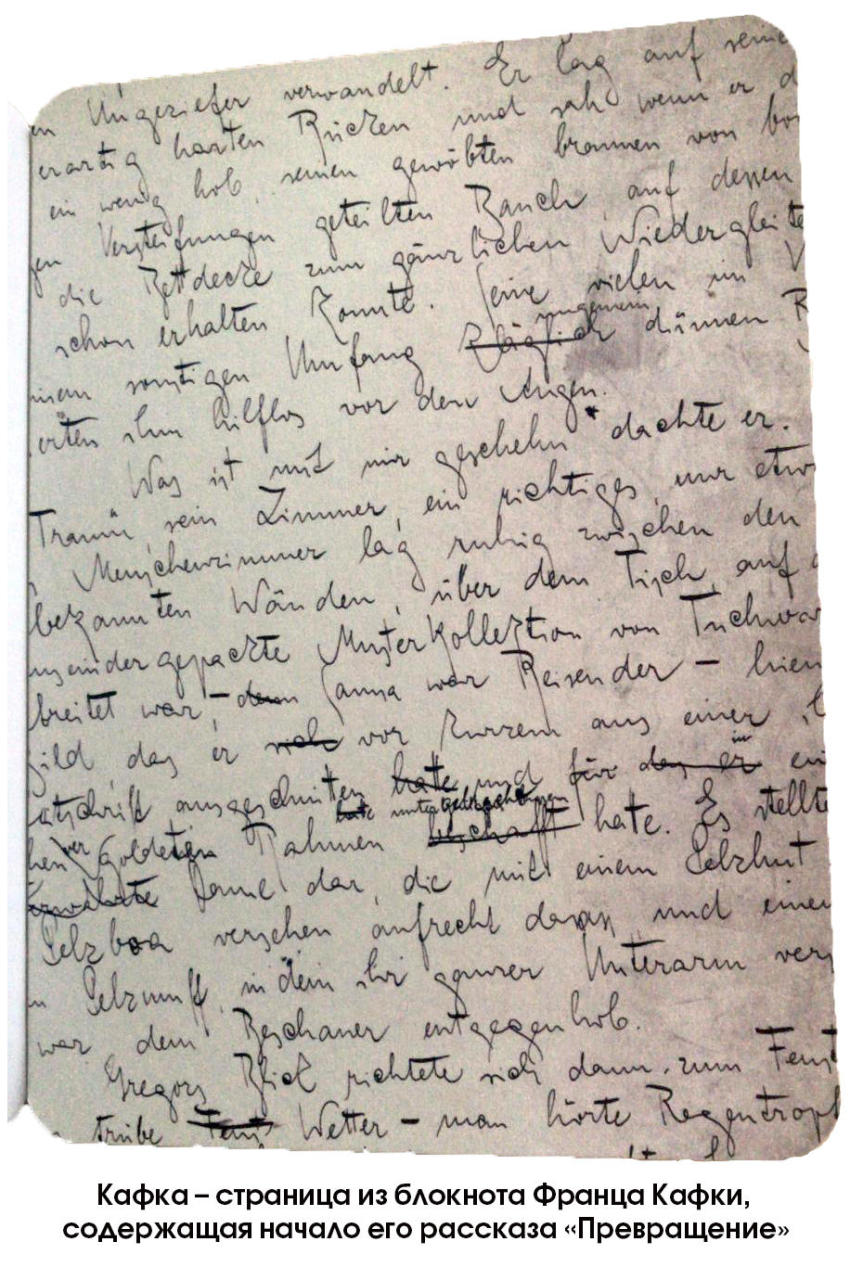 en Ungeziefer verwandelt. Er lag auf seine
erartig harten Rücken und sah wenn er d
ein wenig hob, seinen gewölbten braunen von bo
gen Versteifungen geteilten Bauch, auf dessen
die Bettdecke zum gänzlichen Niedergleite
schon erhalten konnte. Seine vielen im V
ungemein
inem sonstigen Umfang kläglich dünnen B
erten ihm hilflos vor den Augen.
Was ist mit mir geschehn dachte er.
Traum, sein Zimmer, ein richtiges, nur etw
Menschenzimmer lag ruhig zwischen den
bekannten Wänden, über dem Tisch, auf
auseinandergepackte Musterkollektion von Tuchwar
breitet war – denn Samsa war Reisender – hien
ild das er sich vor kurzem aus einer
atschrift ausgeschnitten hatte und für das er ein
in
hatte untergebracht
hen vergoldeten Rahmen beschafft hatte. Es stellte
Dame dar, die mit einem Pelzhut
Pelzboa versehen aufrecht dasass und einen
n Pelzmuff, in dem ihr ganzer Unterarm vers
war dem Beschauer entgegenhob.
Gregors Blick richtete sich dann zum Fenst
trübe Fens Wetter – man hörte Regentropf
Кафка – страница из блокнота Франца Кафки,
содержащая начало его рассказа «Превращение»